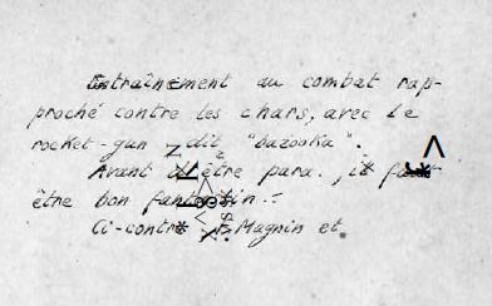 Entraînement au combat rap-
proché contre les chars, avec le
rocket-gun dit "bazooka".
Avant d'être para. , il faut
être bon fantassin. -
Ci-contre Magnin et